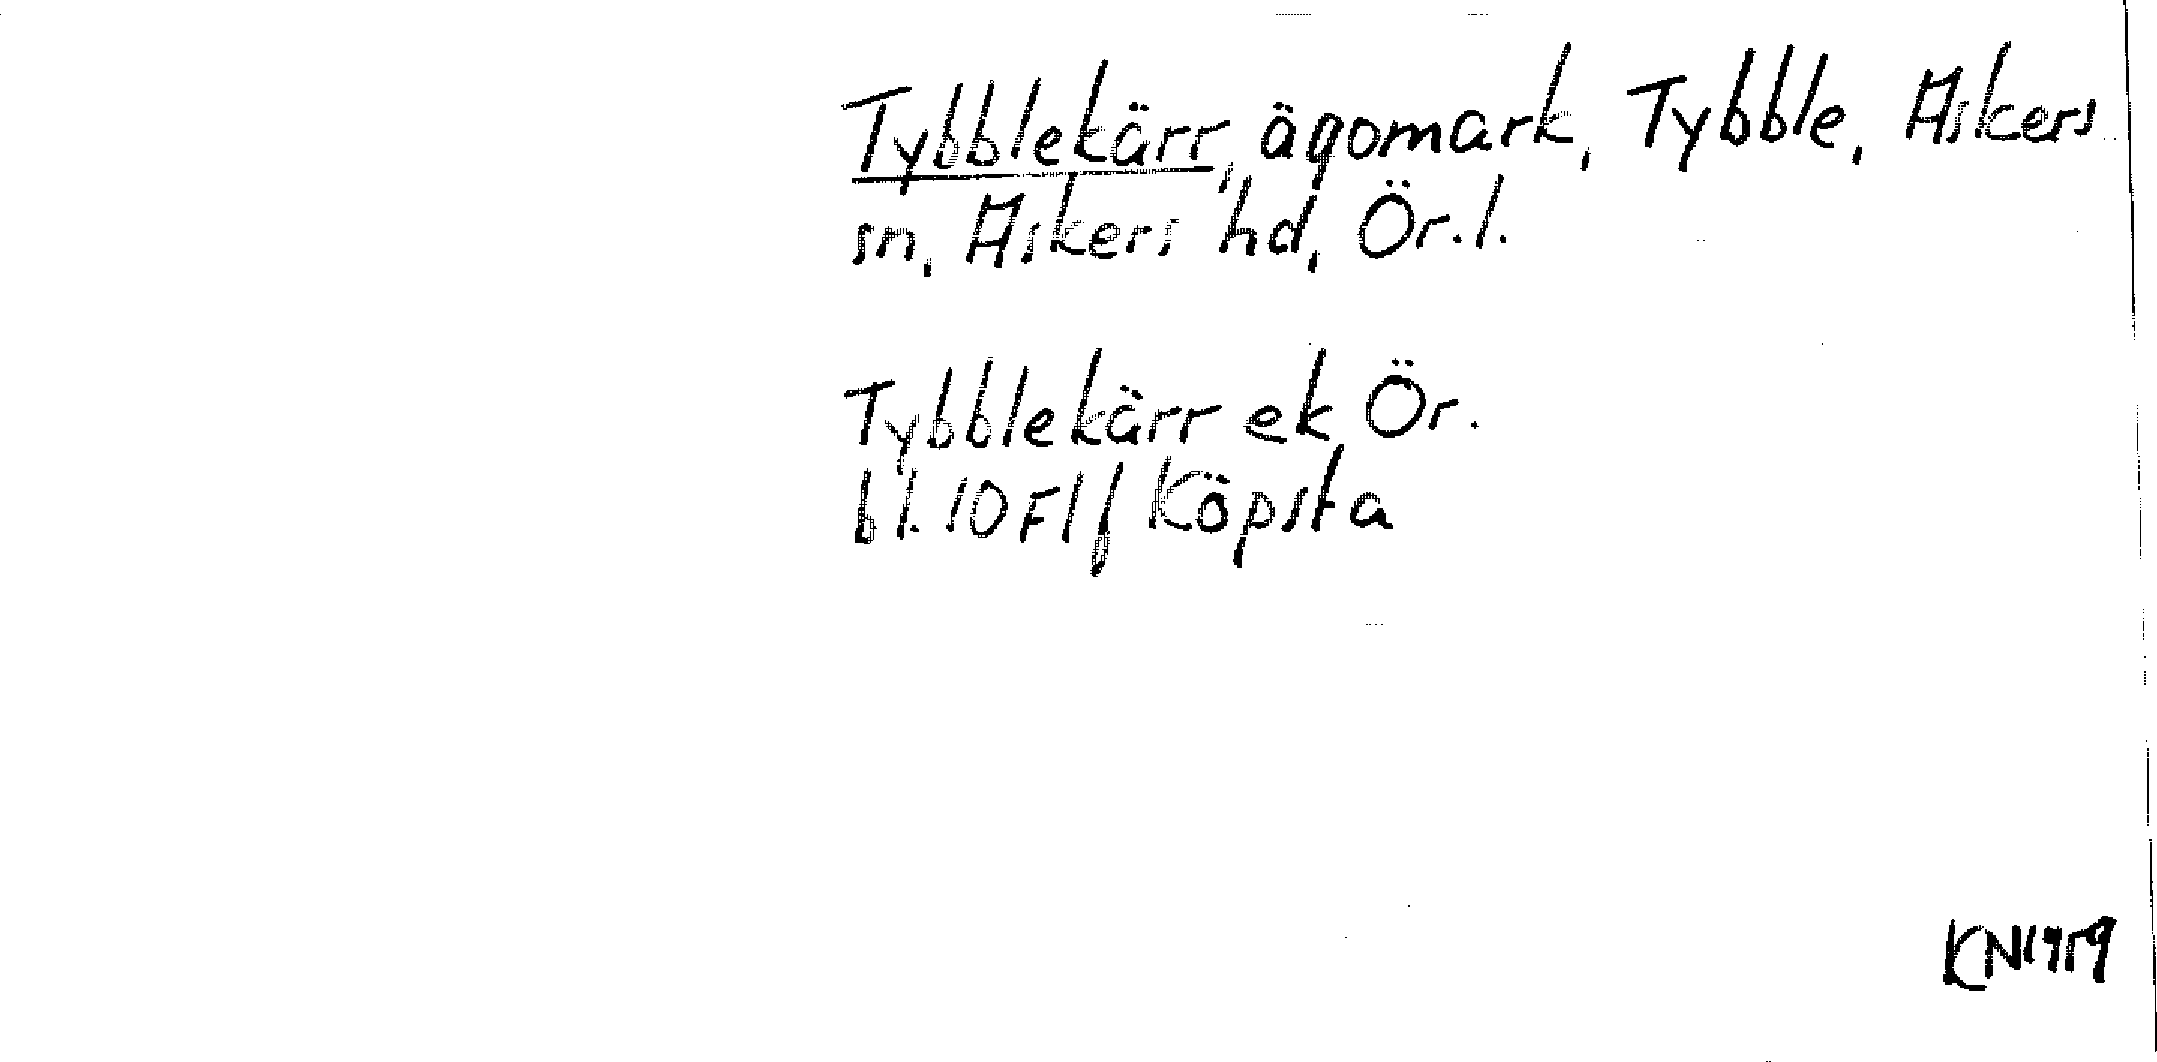 Tybblekärr, ägomark, Tybble, Askers
sn, Askers hd, Ör.l.
Tybblekärr ek Ör.
bl. 10F1f Köpsta
KN1959